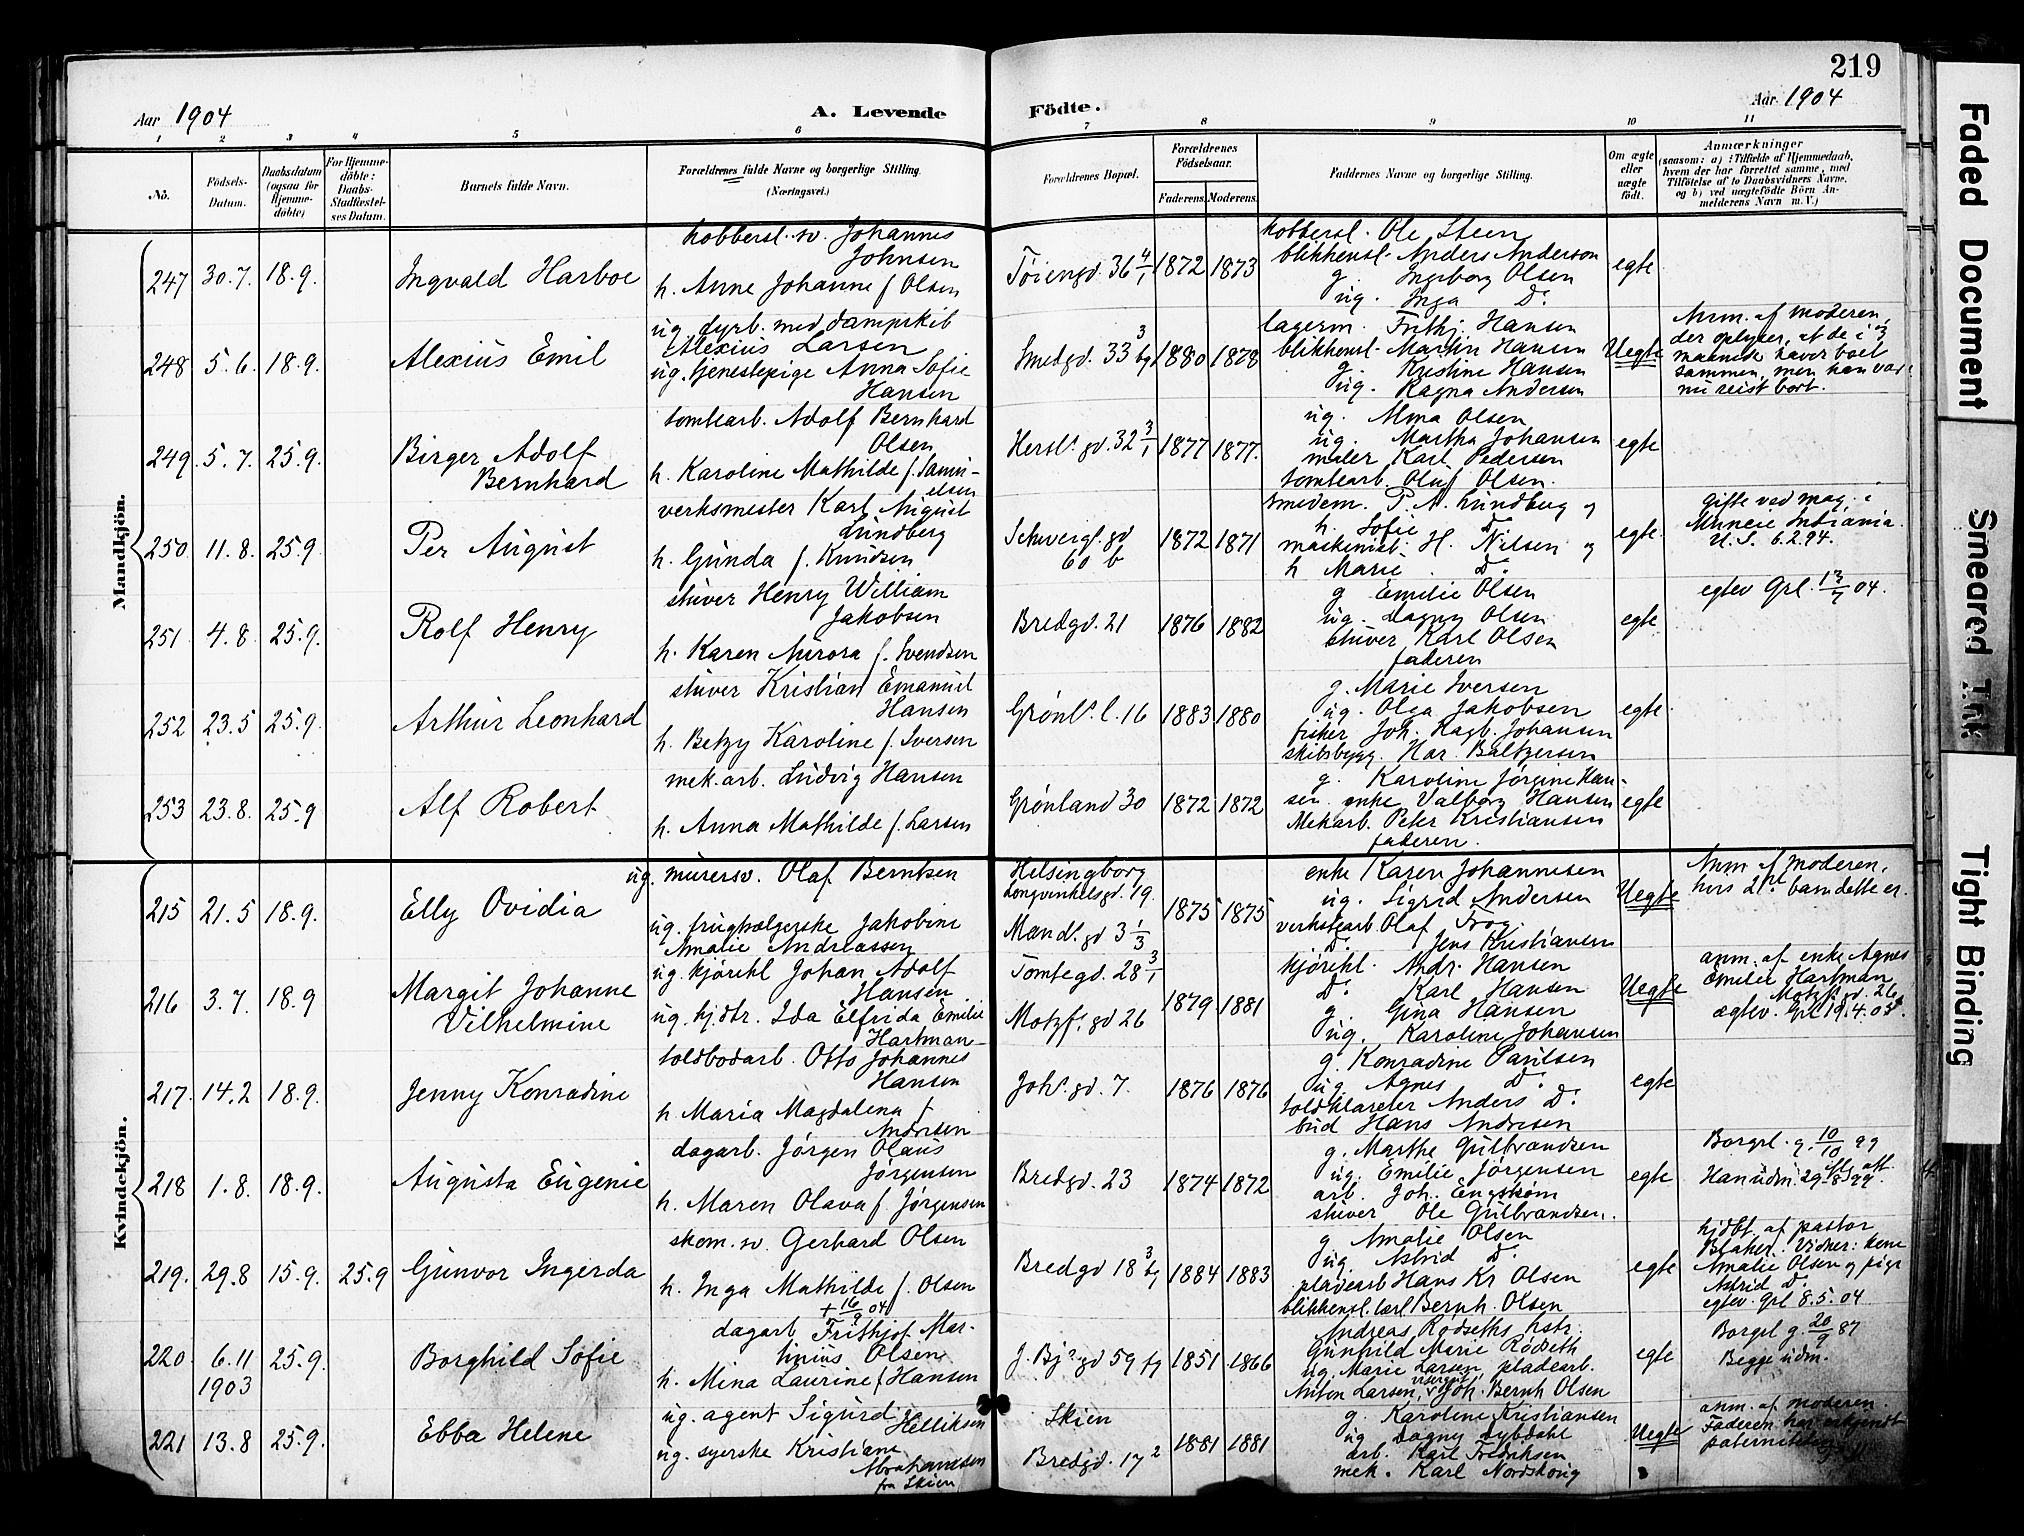 219
Aar 1904
A. Levende
Födte.
Aar 1904
1 2 3 4 5 6 7 8 9 10 11
No.
Födsels-
Datum.
Daabsdatum
(ogsaa for
Hjemme-
döbte)
For Hjemme-
döbte:
Daabs-
Stadfæstel-
ses Datum.
Barnets fulde Navn.
Forældrenes fulde Navne og borgerlige Stilling.
(Næringsvei.)
Forældrenes Bopæl.
Forældrenes
Födselsaar.
Faderens. Moderens.
Faddernes Navne og borgerlige Stilling.
Om ægte
eller
uægte
født.
Anmærkninger
(saasom: a) i Tilfælde af Hjemmedaab,
hvem der har forrettet samme, med
Tilföielse af to Daabsvidners Navne.
og b) ved uægtefödte Börn An-
melderens Navn m. V.)
Mandkjön.
247 30.7. 18.9. Ingvald Harboe
kobbersl. sv. Johannes
Johnsen
h. Anne Johanne f. Olsen
Tøiengd. 36 4/1 1872 1873
kobbersl. Ole Steen
blikkensl. Anders Anderson
g. Ingeborg Olsen
ug. Inga Do
egte
248 5.6. 18.9. Alexius Emil
ug. fyrb. med dampskib
Alexius Larsen
ug. tjenestepige Anna Sofie
Hansen
Smedgd. 33 3 bg 1880 1878
lagerm. Frithj. Hansen
blikkensl. Martin Hansen
g. Kristine Hansen
ug. Ragna Andersen
Uegte
Anm. af moderen,
der oplyser, at de i 3
maaneder haver boet
sammen, men han var
nu reist bort.
249. 5.7. 25.9. Birger Adolf
Bernhard
tomtearb. Adolf Bernhard
Olsen
h. Karoline Mathilde f. Samu-
elsen
Hersl. gd. 32 3/1 1877 1877.
ug. Alma Olsen
ug. Martha Johansen
maler Karl Pedersen
tomtearb. Oluf Olsen.
egte
250. 11.8. 25.9 Per August
verksmester Karl August
Lundberg
h. Gunda f. Knudsen
Schweigs. gd
60 b
1872 1871
smedem. P. A. Lundberg og
h. Sofie Do
maskinist. H. Nilsen og
h Marie. Do
egte.
Gifte ved mag. i
Muncie Indiania
U. S. 6.2.94.
251. 4.8. 25.9. Rolf Henry
stuver Henry William
Jakobsen
h. Karen Aurora f. Svendsen
Bredgd. 21 1876 1882
g Emilie Olsen
ug. Dagny Olsen
stuver Karl Olsen
faderen
egte
egtev Grl. 13/7 04.
252 23.5 25.9. Arthur Leonhard
stuver Kristian Emanuel
Hansen
h. Betzy Karoline f. Iversen
Grønls. l. 16 1883 1880
g. Marie Iversen
ug. Olga Jakobsen
fisker Joh. Hagb. Johansen
skibsbygg. Har. Baltzersen
egte
253 23.8. 25.9 Alf Robert
mek. arb. Ludvig Hansen
h. Anna Mathilde f. Larsen
Grønland 30 1872 1872
g. Karoline Jørgine Han-
sen enke Valborg Hansen
Mek arb. Peter Kristiansen
faderen.
egte
Kvindekjön.
215 21.5 18.9. Elly Ovidia
ug. murersv. Olaf Berntsen
ug. frugtsælgerske Jakobine
Amalie Andreassen
Helsingborg
Longvinkelsgd. 19.
Mandl. gd 3 1/3
1875 1875
enke Karen Johannesen
ug. Sigrid Andersen
verkstearb Olaf
Do Jens Kristiansen
Uegte
Anm af moderen,
hvis 2det barn dette er.
216 3.7. 18.9 Margit Johanne
Vilhelmine
ug. kjørekl Johan Adolf
Hansen
ug. hj.dtr. Ida Elfrida Emilie
Hartman
Tomtegd. 28 3/1
Motzf. gd 26
1879 1881
kjørekl. Andr. Hansen
Do Karl Hansen
g. Gina Hansen
ug. Karoline Johansen
Uegte
anm. af enke Agnes
Emilie Hartman
Motzf. gd. 26.
ægtev. Grl 19.4.05.
217. 14.2 18.9. Jenny Konradine
toldbodarb. Otto Johannes
Hansen
h. Maria Magdalena f
Andresen
Johs. gd. 7. 1876 1876
g. Konradine Paulsen
ug. Agnes Do
toldklarerer Anders Do
bud Hans Andresen
egte
218 1.8. 18.9. Augusta Eugenie
dagarb. Jørgen Olaus
Jørgensen
h. Maren Olava f. Jørgensen
Bredgd. 23 1874 1872
g. Marthe Gulbrandsen
ug. Emilie Jørgensen
arb. Joh. Engstrøm
stuver Ole Gulbrandsen.
egte
Borgrl. g. 10/10 99
Han udm. 29/8 99.
219. 29.8 15.9. 25.9 Gunvor Ingerda
skom. sv. Gerhard Olsen
h. Inga Mathilde f. Olsen
+ 16/9 04
Bredgd 18 3 bg 1884 1883
g Amalie Olsen
ug. Astrid Do
pladearb Hans Kr Olsen
blikkensl. lærl Bernh. Olsen
egte
hjdbt. af pastor
Blaker. Vidner: kone
Amalie Olsen og pige
Astrid Do
egtev. Grl 8.5.04
220. 6.11 25.9. Borghild Sofie
1903
dagarb Frithjof Mar-
tinius Olsen
h. Mina Laurine f Hansen
J. Bj. gd 59 fg 1851 1866
Andreas Rødseths hstr.
Gunhild Marie Rødseth
ug. Marie Larsen, pladearb.
Anton Larsen, Joh. Bernh Olsen
egte
Borgrl g. 20/9 87
Begge udm.
221 13.8 25.9. Ebba Helene
ug. agent Sigurd
Helliksen
ug. syerske Kristiane
Abrahamsen
fra Skien
Skien
Bredgd. 17 2
1881 1881
g. Karoline Kristiansen
ug Dagny Dybdahl
arb. Karl Fredriksen
mek. Karl Nordskoug
Uegte
anm. af moderen.
Faderen har erkjendt
paterniteten
Faded Document
Smeared Ink
Tight Binding